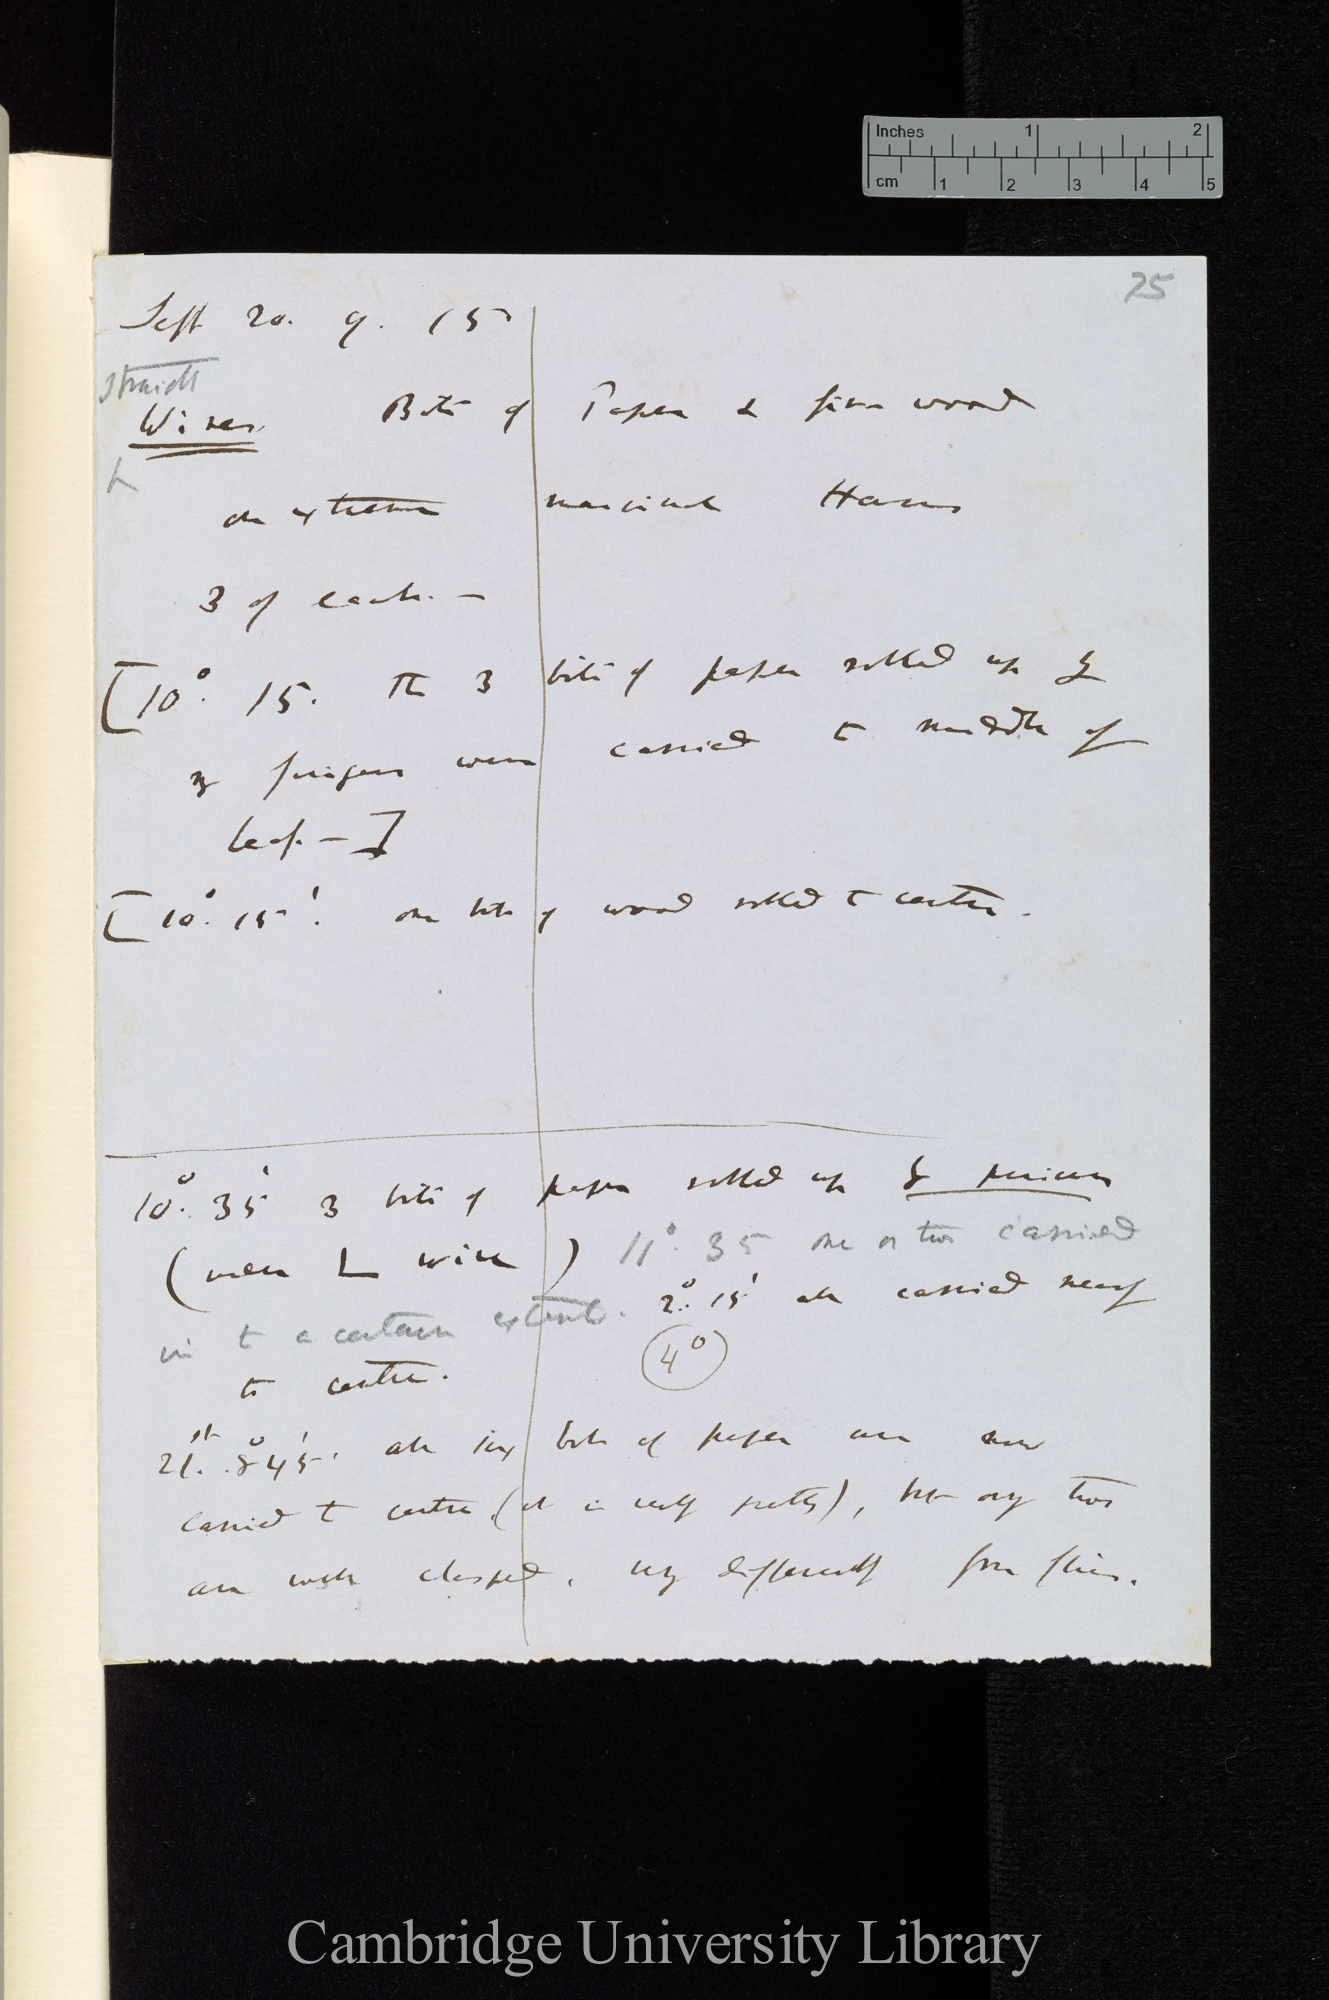 Inches 1 2
cm 1 2 3 4 5
25
Sept 20. 9. 15
Straight
Wires Bits of Paper & fine wood
L
on extreme marginal Hairs
3 of each. —
[10°. 15. The 3 bits of paper rolled up &
by fingers were carried to middle of
leaf. — ]
[10°. 15'. one bit of wood rolled to centre.
10°. 35' 3 bits of paper rolled up &
(near L wire) 11°. 35 one or two carried
in to a certain extent. 2°. 15' all carried nearly
to centre. 4°
21st. 8°45'. all six bits of paper are now
carried to centre, ( ), but only two
are well clasped, very differently from flies.
Cambridge University Library